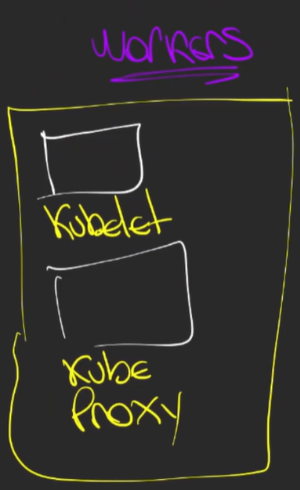 workers
Kubelet
Kube
Proxy